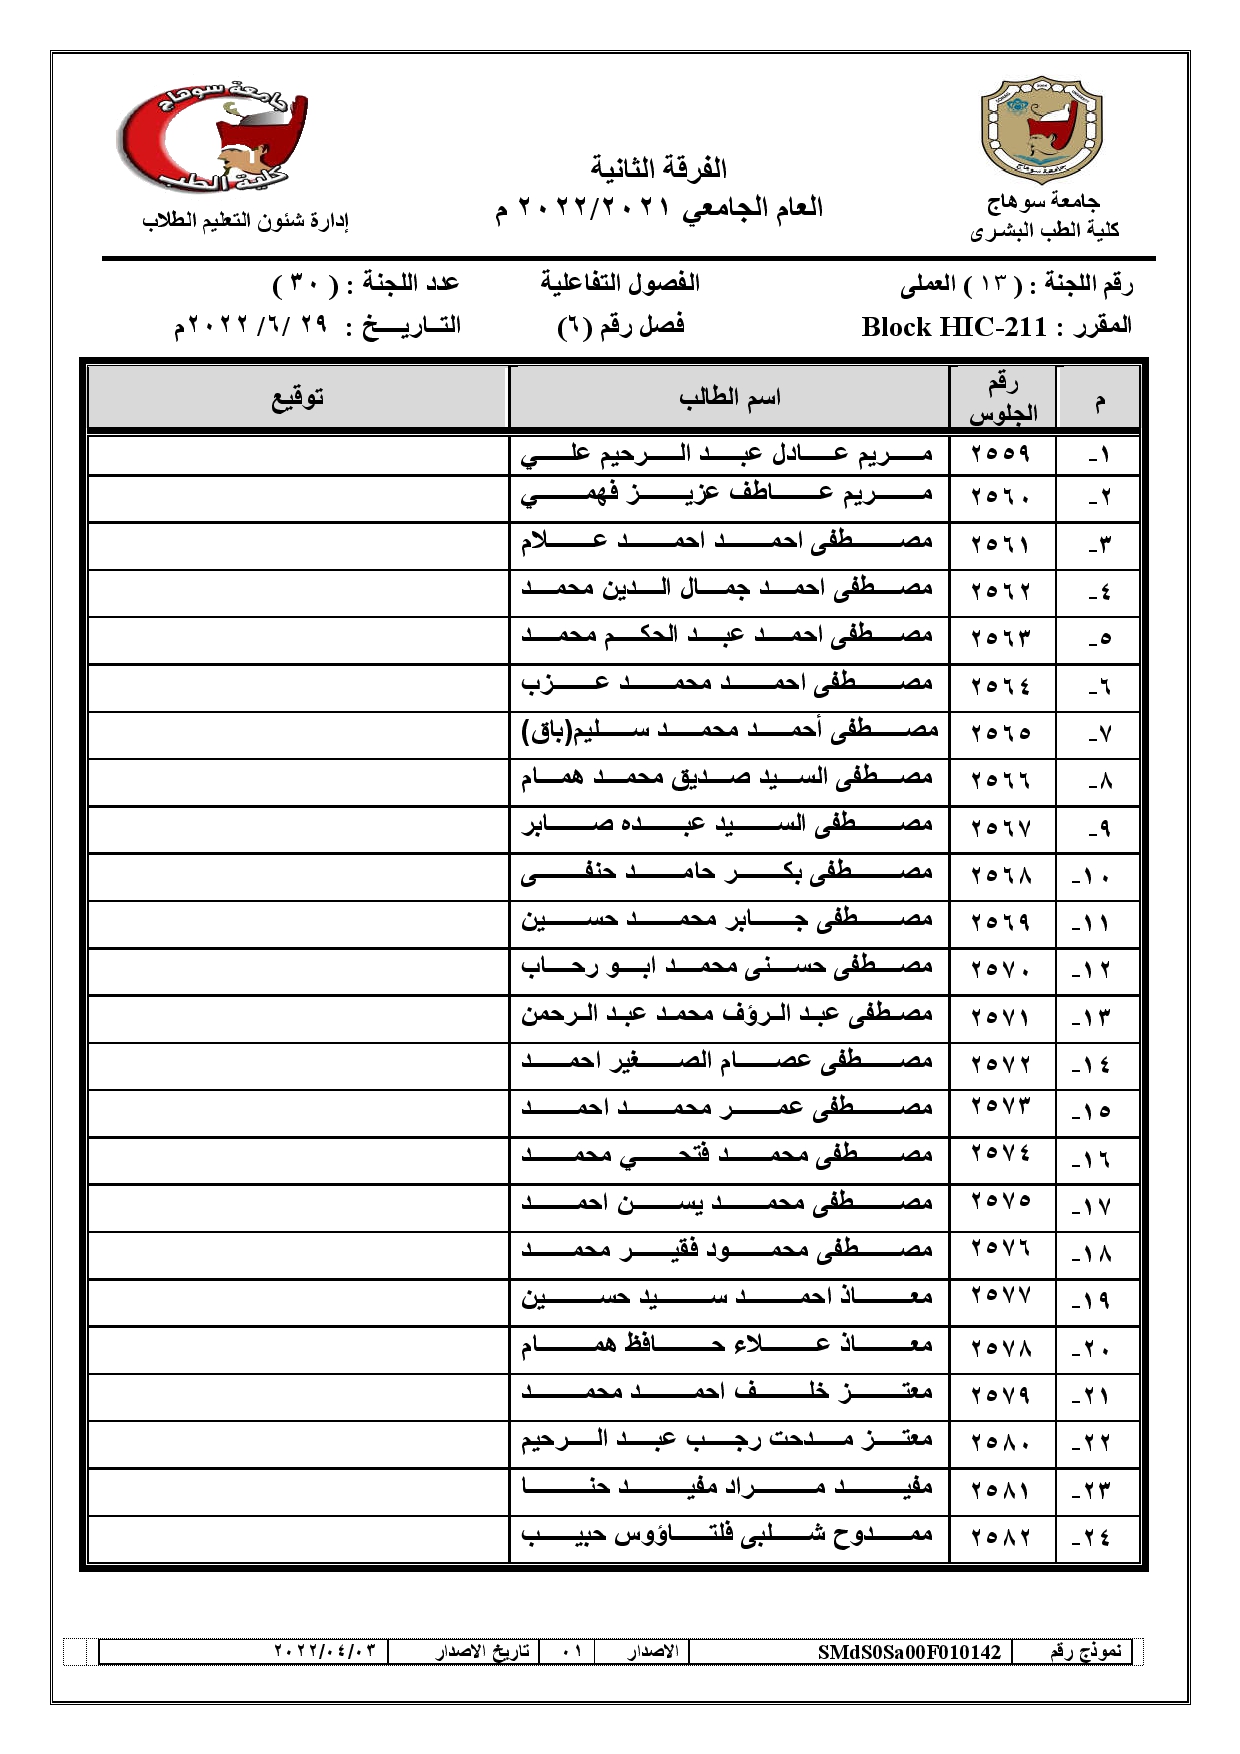 جامعة سوهاج
كلية الطب
جامعة سوهاج
جامعة سوهاج
كلية الطب البشرى
الفرقة الثانية
العام الجامعي ٢٠٢٢/٢٠٢١ م
إدارة شئون التعليم الطلاب
رقم اللجنة : ( ١٣ ) العملى الفصول التفاعلية عدد اللجنة : ( ٣٠ )
المقرر : Block HIC-211 فصل رقم (٦) التـاريـخ : ٢٩ /٦/ ٢٠٢٢م
م رقم الجلوس اسم الطالب توقيع
١- ٢٥٥٩ مريم عادل عبد الرحيم علي
٢- ٢٥٦٠ مريم عاطف عزيز فهمي
٣- ٢٥٦١ مصطفى احمد احمد علام
٤- ٢٥٦٢ مصطفى احمد جمال الدين محمد
٥- ٢٥٦٣ مصطفى احمد عبد الحكم محمد
٦- ٢٥٦٤ مصطفى احمد محمد عزب
٧- ٢٥٦٥ مصطفى أحمد محمد سليم(باق)
٨- ٢٥٦٦ مصطفى السيد صديق محمد همام
٩- ٢٥٦٧ مصطفى السيد عبده صابر
١٠- ٢٥٦٨ مصطفى بكر حامد حنفى
١١- ٢٥٦٩ مصطفى جابر محمد حسين
١٢- ٢٥٧٠ مصطفى حسنى محمد ابو رحاب
١٣- ٢٥٧١ مصطفى عبد الرؤف محمد عبد الرحمن
١٤- ٢٥٧٢ مصطفى عصام الصغير احمد
١٥- ٢٥٧٣ مصطفى عمر محمد احمد
١٦- ٢٥٧٤ مصطفى محمد فتحي محمد
١٧- ٢٥٧٥ مصطفى محمد يسن احمد
١٨- ٢٥٧٦ مصطفى محمود فقير محمد
١٩- ٢٥٧٧ معاذ احمد سيد حسين
٢٠- ٢٥٧٨ معاذ علاء حافظ همام
٢١- ٢٥٧٩ معتز خلف احمد محمد
٢٢- ٢٥٨٠ معتز مدحت رجب عبد الرحيم
٢٣- ٢٥٨١ مفيد مراد مفيد حنا
٢٤- ٢٥٨٢ ممدوح شلبى فلتاؤوس حبيب
نموذج رقم SMdS0Sa00F010142 الاصدار ٠١ تاريخ الاصدار ٢٠٢٢/٠٤/٠٣